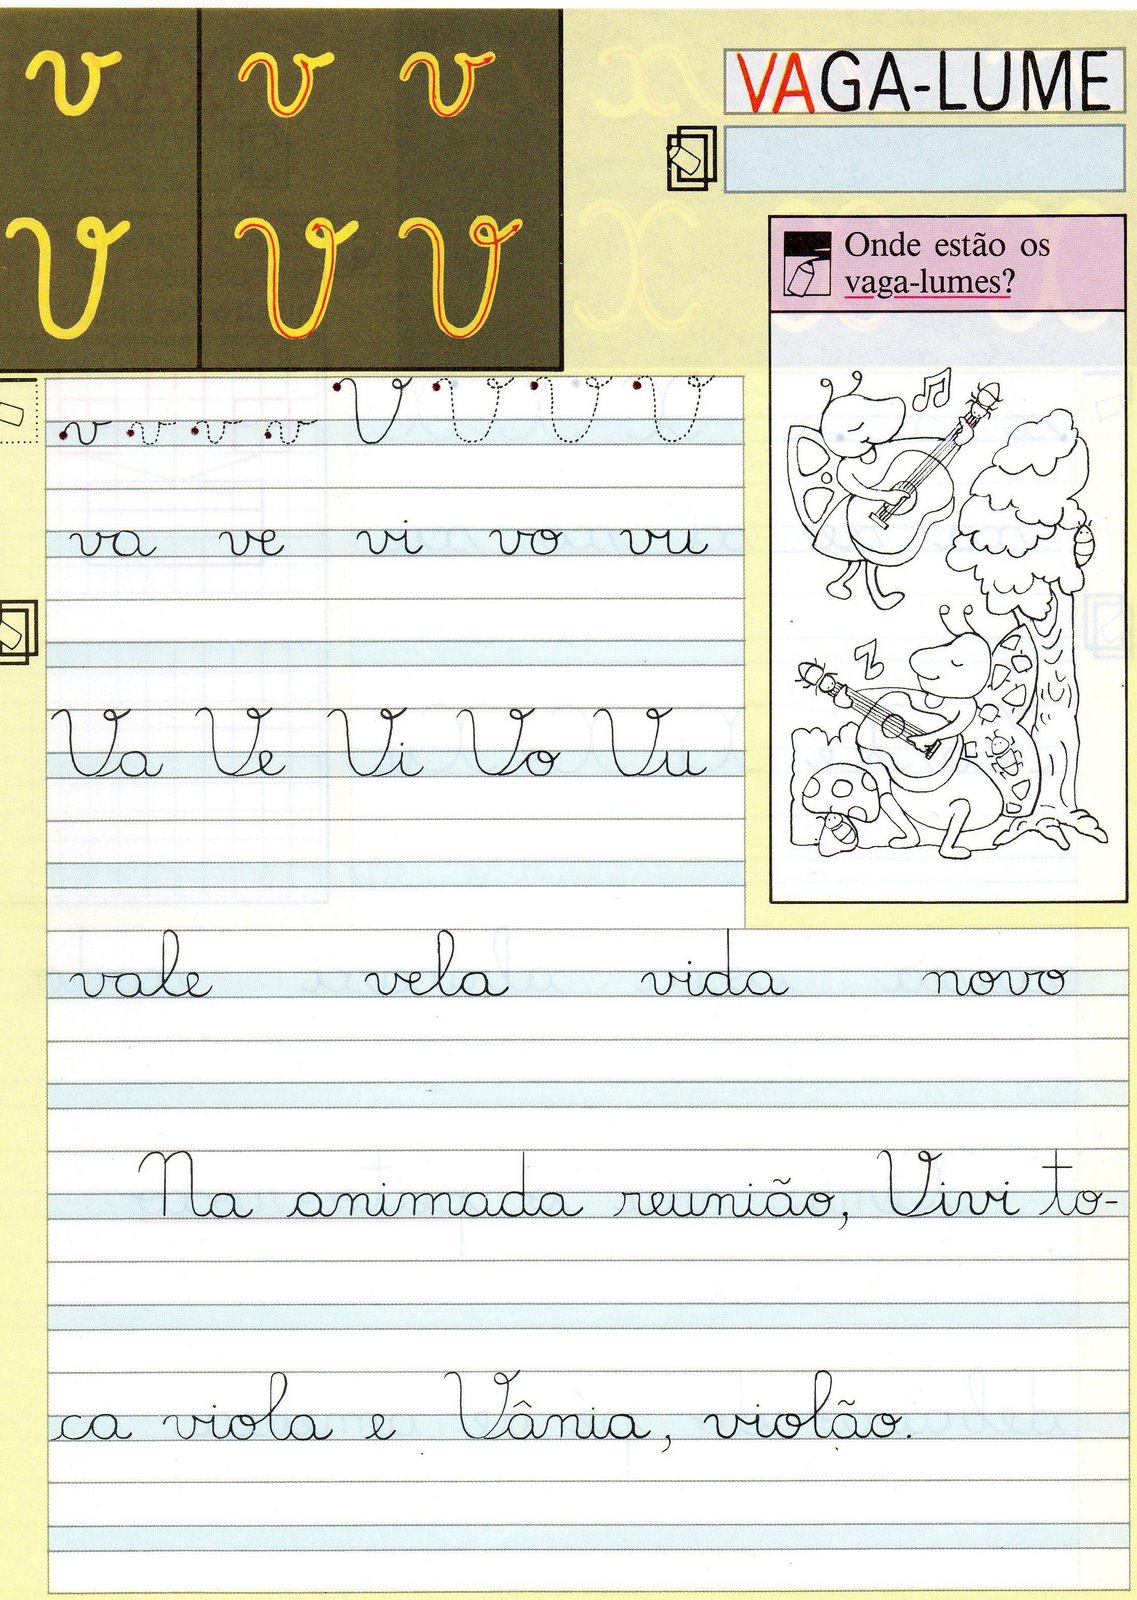 v v v
VAGA-LUME
V V V
Onde estão os
vaga-lumes?
v v v v V V V V
va ve vi vo vu
Va Ve Vi Vo Vu
vale vela vida novo
Na animada reunião, Vivi to-
ca viola e Vânia, violão.